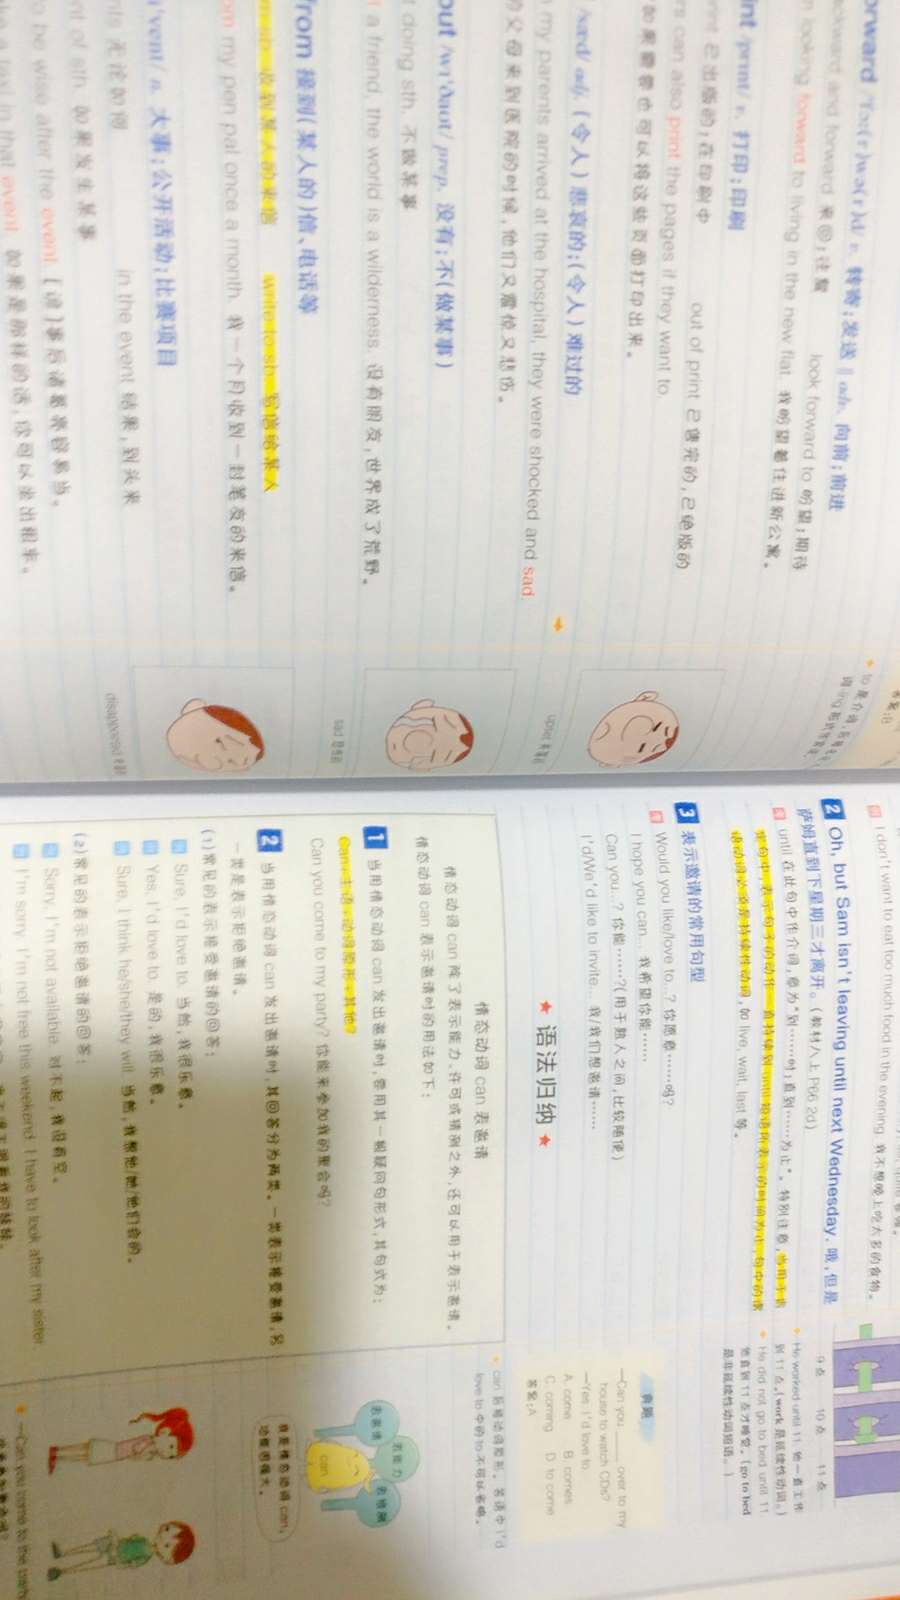 orward /ˈfɔː(r)wə(r)d/ v. 转寄；发送 ‖ adv. 向前；前进
ackward and forward 来回；往复 look forward to 盼望；期待
looking forward to living in the new flat. 我盼望着住进新公寓。
int /print/ v. 打印；印刷
print 已出版的；在印刷中 out of print 已售完的，已绝版的
rs can also print the pages if they want to.
如果需要也可以将这些页面打印出来。
/sæd/ adj. (令人)悲哀的；(令人)难过的
my parents arrived at the hospital, they were shocked and sad.
的父母来到医院的时候，他们又震惊又悲伤。
out /wɪˈðaʊt/ prep. 没有；不(做某事)
t doing sth. 不做某事
a friend, the world is a wilderness. 没有朋友，世界成了荒野。
from 接到(某人的)信、电话等
收到某人的来信 write to sb. 写信给某人
om my pen pal once a month. 我一个月收到一封笔友的来信。
ɪˈvent/ n. 大事；公开活动；比赛项目
无论如何 in the event 结果，到头来
nt of sth. 如果发生某事
o be wise after the event. [谚]事后诸葛亮容易当。
in that event. 如果是那样的话，你可以坐出租车。
答案：B
to 是介词，后接名词
upset 难过的
sad 悲伤的
disappointed 失望的
I don't want to eat too much food in the evening. 我不想晚上吃太多的食物。
2 Oh, but Sam isn't leaving until next Wednesday. 哦，但是
萨姆直到下星期三才离开。(教材八上 P66 2d)
until 在此句中作介词，意为“到……时；直到……为止”。特别注意，当用于肯
定句中，表示句子的动作一直持续到 until 短语所表示的时间为止，句中的谓
语动词必须是持续性动词，如 live, wait, last 等。
9 点 10 点 11 点
He worked until 11. 他一直工作
到 11 点。(work 是延续性动词。)
He did not go to bed until 11.
他直到 11 点才睡觉。(go to bed
是非延续性动词短语。)
3 表示邀请的常用句型
Would you like/love to...? 你愿意……吗？
I hope you can... 我希望你能……
Can you...? 你能……？(用于熟人之间，比较随便)
I'd/We'd like to invite... 我/我们想邀请……
典题
—Can you ____ over to my
house to watch CDs?
—Yes, I'd love to.
A. come B. comes
C. coming D. to come
答案：A
★ 语法归纳 ★
情态动词 can 表邀请
情态动词 can 除了表示能力、许可或猜测之外，还可以用于表示邀请。
情态动词 can 表示邀请时的用法如下：
1 当用情态动词 can 发出邀请时，要用其一般疑问句形式，其句式为：
Can+主语+动词原形+其他？
Can you come to my party? 你能来参加我的聚会吗？
2 当用情态动词 can 发出邀请时，其回答分为两类。一类表示接受邀请，另
一类是表示拒绝邀请。
(1)常见的表示接受邀请的回答：
Sure, I'd love to. 当然，我很乐意。
Yes, I'd love to. 是的，我很乐意。
Sure, I think he/she/they will. 当然，我想他/她/他们会的。
(2)常见的表示拒绝邀请的回答：
Sorry, I'm not available. 对不起，我没有空。
I'm sorry. I'm not free this weekend. I have to look after my sister.
can 后接动词原形。答语中 I'd
love to 中的 to 不可以省略。
表邀请
表能力
表推测
can
我是情态动词 can，
功能很强大。
—Can you come to the party